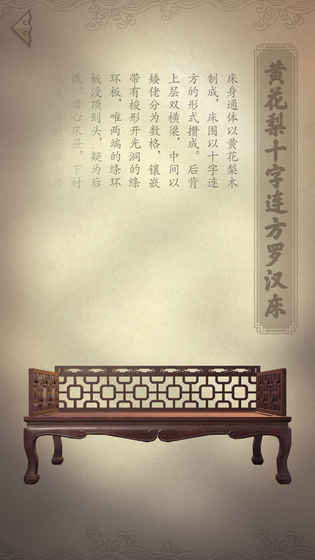 黄花梨十字连方罗汉床
床身通体以黄花梨木
制成，床围以十字连
方的形式攒成。后背
上层双横梁，中间以
矮佬分为数格，镶嵌
带有梭形开光洞的绦
环板，唯两端的绦环
板没顶到头，疑为后